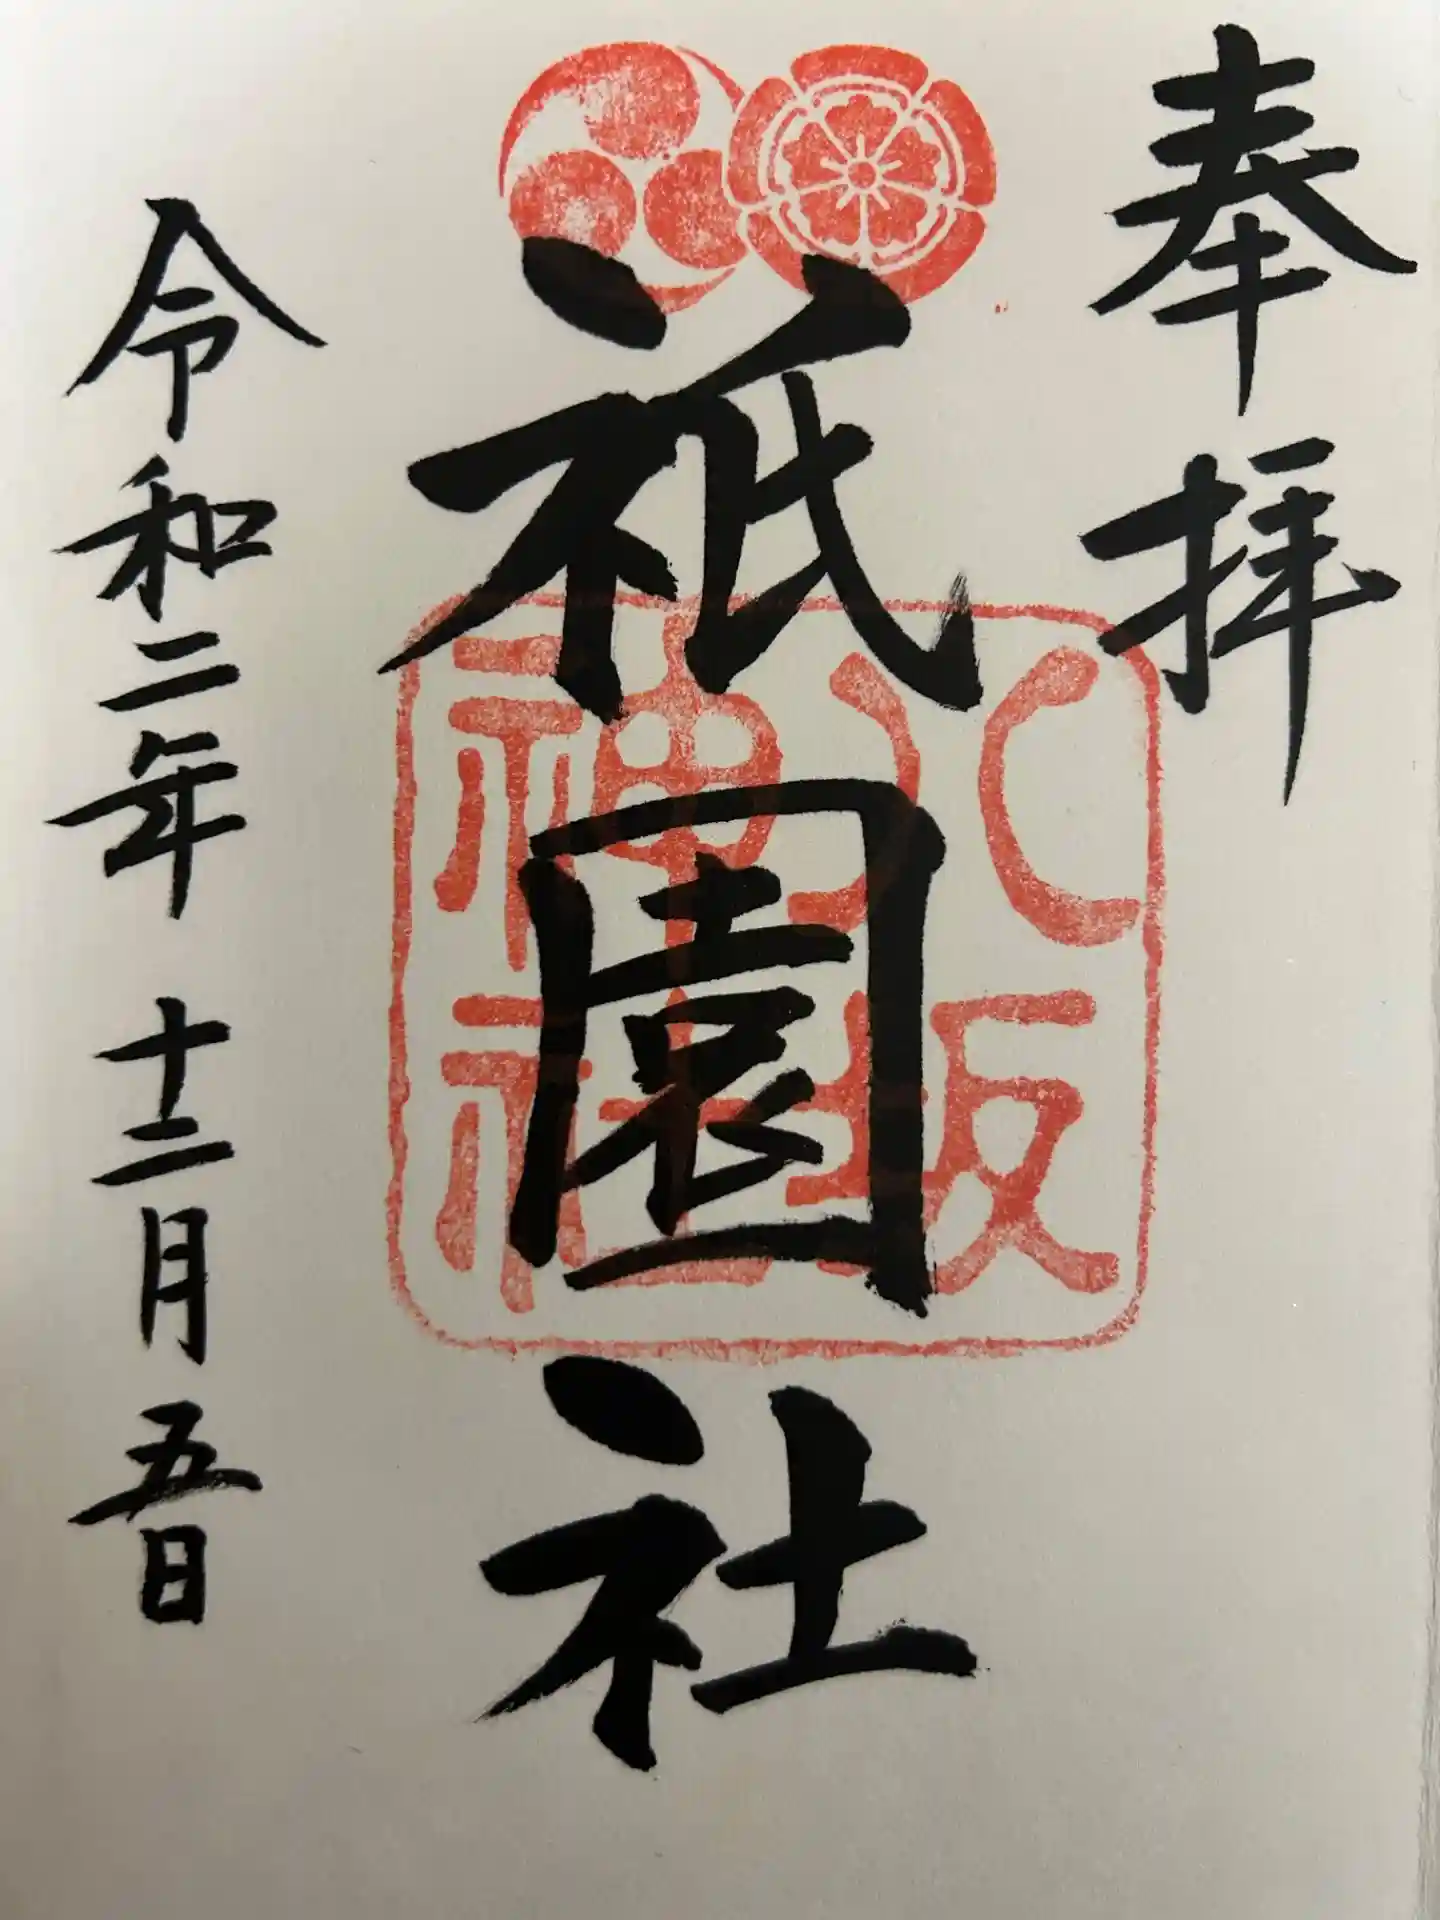 奉拝
祇園社
八坂
神社
令和二年 十二月 五日